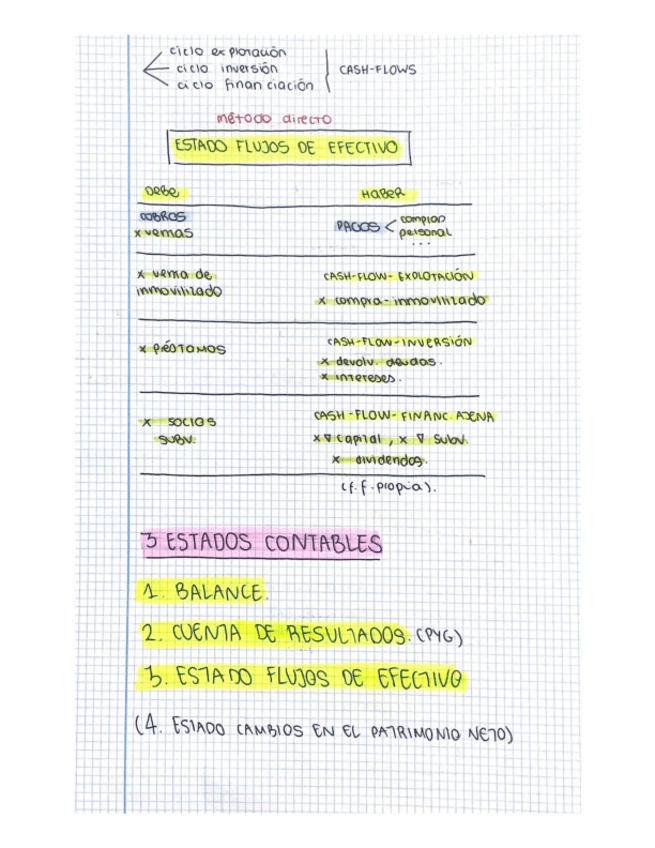 ciclo explotación
ciclo inversión
ciclo financiación
CASH-FLOWS
método directo
ESTADO FLUJOS DE EFECTIVO
DEBE HABER
COBROS
x ventas
PAGOS < compras
personal
...
x venta de
inmovilizado
CASH-FLOW-EXPLOTACIÓN
x compra-inmovilizado
x PRÉSTAMOS
CASH-FLOW-INVERSIÓN
x devolv. deudas.
x intereses.
x SOCIOS
SUBV.
CASH-FLOW-FINANC. AJENA
x ∇ capital, x ∇ subv.
x dividendos.
(f.f. propia).
3 ESTADOS CONTABLES
1. BALANCE.
2. CUENTA DE RESULTADOS. (PYG)
3. ESTADO FLUJOS DE EFECTIVO
(4. ESTADO CAMBIOS EN EL PATRIMONIO NETO)